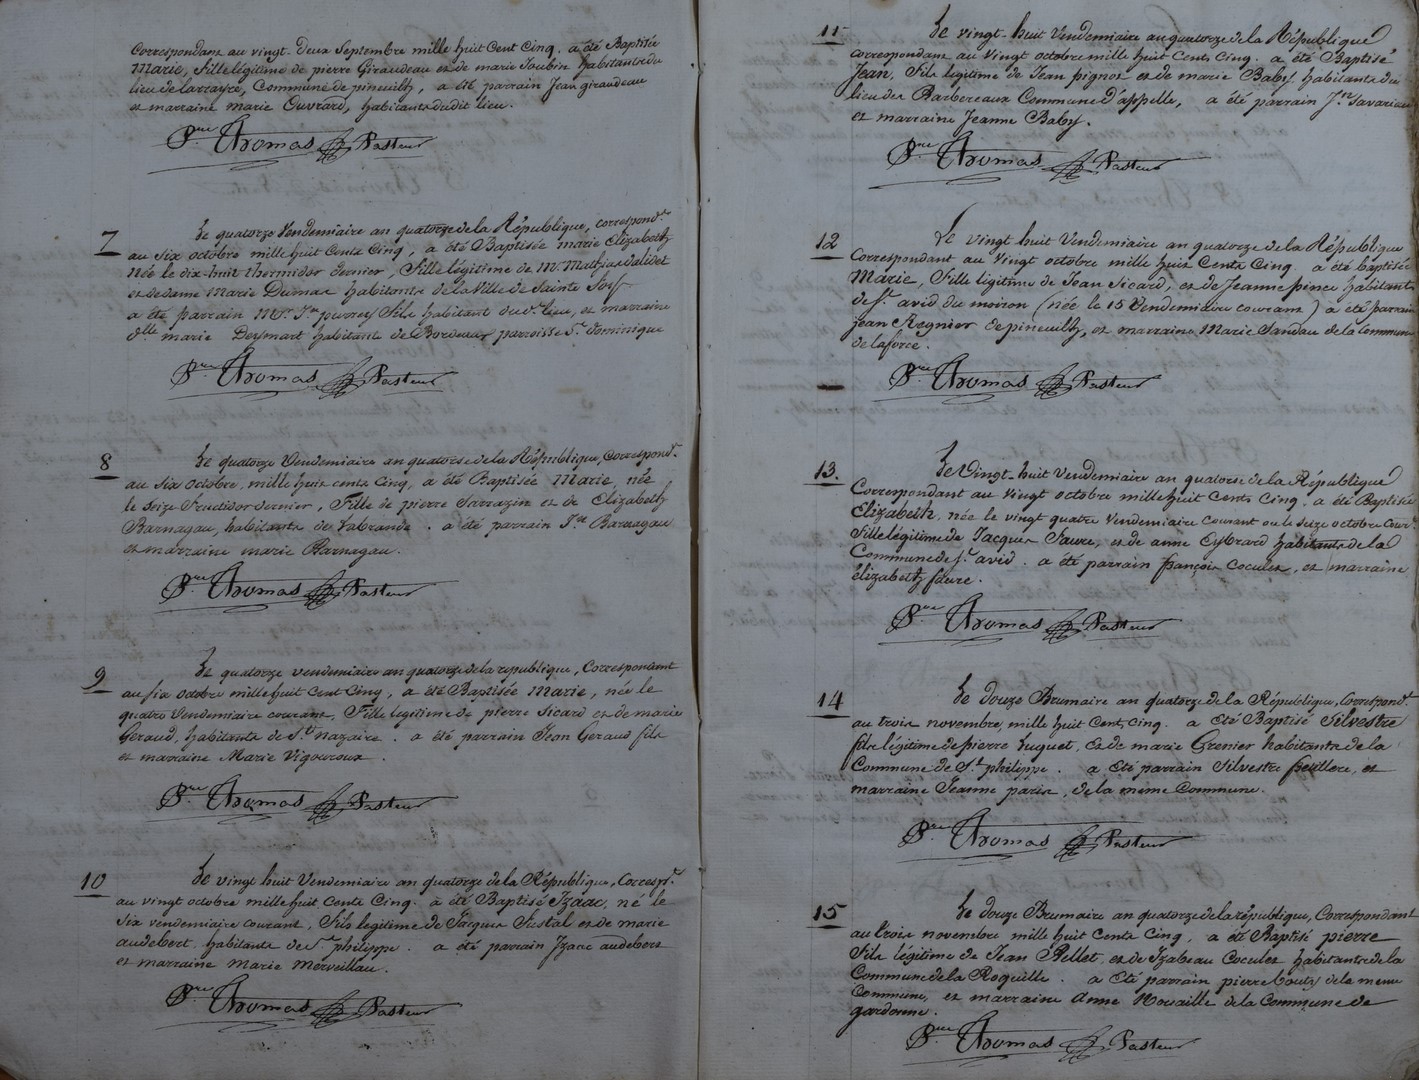 Correspondant au vingt-deux Septembre mille huit Cent Cinq. a été Baptisée
Marie, fille légitime de pierre Giraudeau et de marie Joubin habitants du
lieu de Larrayre, Commune de pineuilh, a été parrain Jean giraudeau
et marraine marie Ouvrard, habitants dudit lieu.
Pre. Thomas Pasteur
7 Le quatorze Vendemiaire an quatorze de la République, correspondt.
au six octobre mille huit Cents Cinq, a été Baptisée marie Elizabeth
née le dix-huit thermidor dernier, fille légitime de Mr. Mathias Validet
et de dame Marie Dumas habitants de la Ville de Sainte foy
a été parrain Mr. Jn. purrey fils habitant du dt. lieu, et marraine
dlle. marie Deymart habitant de Bordeaux parroisse St. dominique
Pre. Thomas Pasteur
8 Le quatorze Vendemiaire an quatorze de la République, Correspondt.
au six octobre, mille huit cents Cinq, a été Baptisée Marie, née
le seize fructidor dernier, fille de pierre Sarrazin et de Elizabeth
Barnagau, habitants de Labrande. a été parrain Jne Barnagau
et marraine marie Barnagau.
Pre. Thomas Pasteur
9 Le quatorze vendemiaire an quatorze de la republique, Correspondant
au six octobre mille huit Cent Cinq, a été Baptisée Marie, née le
quatre Vendemiaire courant, fille legitime de pierre Sicard et de marie
Geraud, habitants de St. Nazaire. a été parrain Jean Geraud fils
et marraine Marie Vigouroux.
Pre. Thomas Pasteur
10 Le vingt huit Vendemiaire an quatorze de la République, Correspt.
au vingt octobre mille huit Cents Cinq. a été Baptisé Izaac, né le
six vendemiaire courant, fils légitime de Jacques fustal et de marie
audebert. habitants de St. philippe. a été parrain Izaac audebert
et marraine Marie Merveillau.
Pre. Thomas Pasteur
11 Le vingt-huit Vendemiaire an quatorze de la République
correspondant au Vingt octobre mille huit Cents Cinq. a été Baptisé
Jean, fils légitime de Jean pignon et de marie Baby habitants du
lieu des Barbereaux Commune d'appelle, a été parrain Jn. Savariau
et marraine Jeanne Baby.
Pre. Thomas Pasteur
12 Le vingt huit Vendemiaire an quatorze de la République
Correspondant au Vingt octobre mille huit Cents Cinq a été baptisée
Marie, fille légitime de Jean Sicard, et de Jeanne pince habitants
de St. avid du moiron (née le 15 Vendemiaire courant) a été parrain
jean Regnier de pineuilh, et marraine Marie Sandau de la Commune
de laforce.
Pre. Thomas Pasteur
13. Le Vingt-huit Vendemiaire an quatorse de la République
Correspondant au Vingt octobre mille huit Cents Cinq. a été Baptisée
Elizabeth, née le vingt quatre Vendemiaire courant ou le seize octobre Cour.
fille légitime de Jacques faure, et de anne Eybrard habitants de la
Commune de St. avid. a été parrain françois Coculet, et marraine
élizabeth faure.
Pre. Thomas Pasteur
14 Le douze Brumaire an quatorze de la République, Correspondt.
au trois novembre, mille huit Cent, Cinq. a Eté Baptisé Silvestre
fils légitime de pierre huguet, Et de marie Grenier habitants de la
Commune de St. philippe. a été parrain Silvestre feuillere, et
marraine Jeanne paris, de la même Commune.
Pre. Thomas Pasteur
15 Le douze Brumaire an quatorze de la république, Correspondant
au trois novembre mille huit Cents Cinq, a été Baptisé pierre
fils légitime de Jean Pellet, et de Izabeau Coculet habitants de la
Commune de la Roquille. a été parrain pierre bouty de la meme
Commune, et marraine anne Nouaille de la Commune de
gardonne.
Pre. Thomas Pasteur